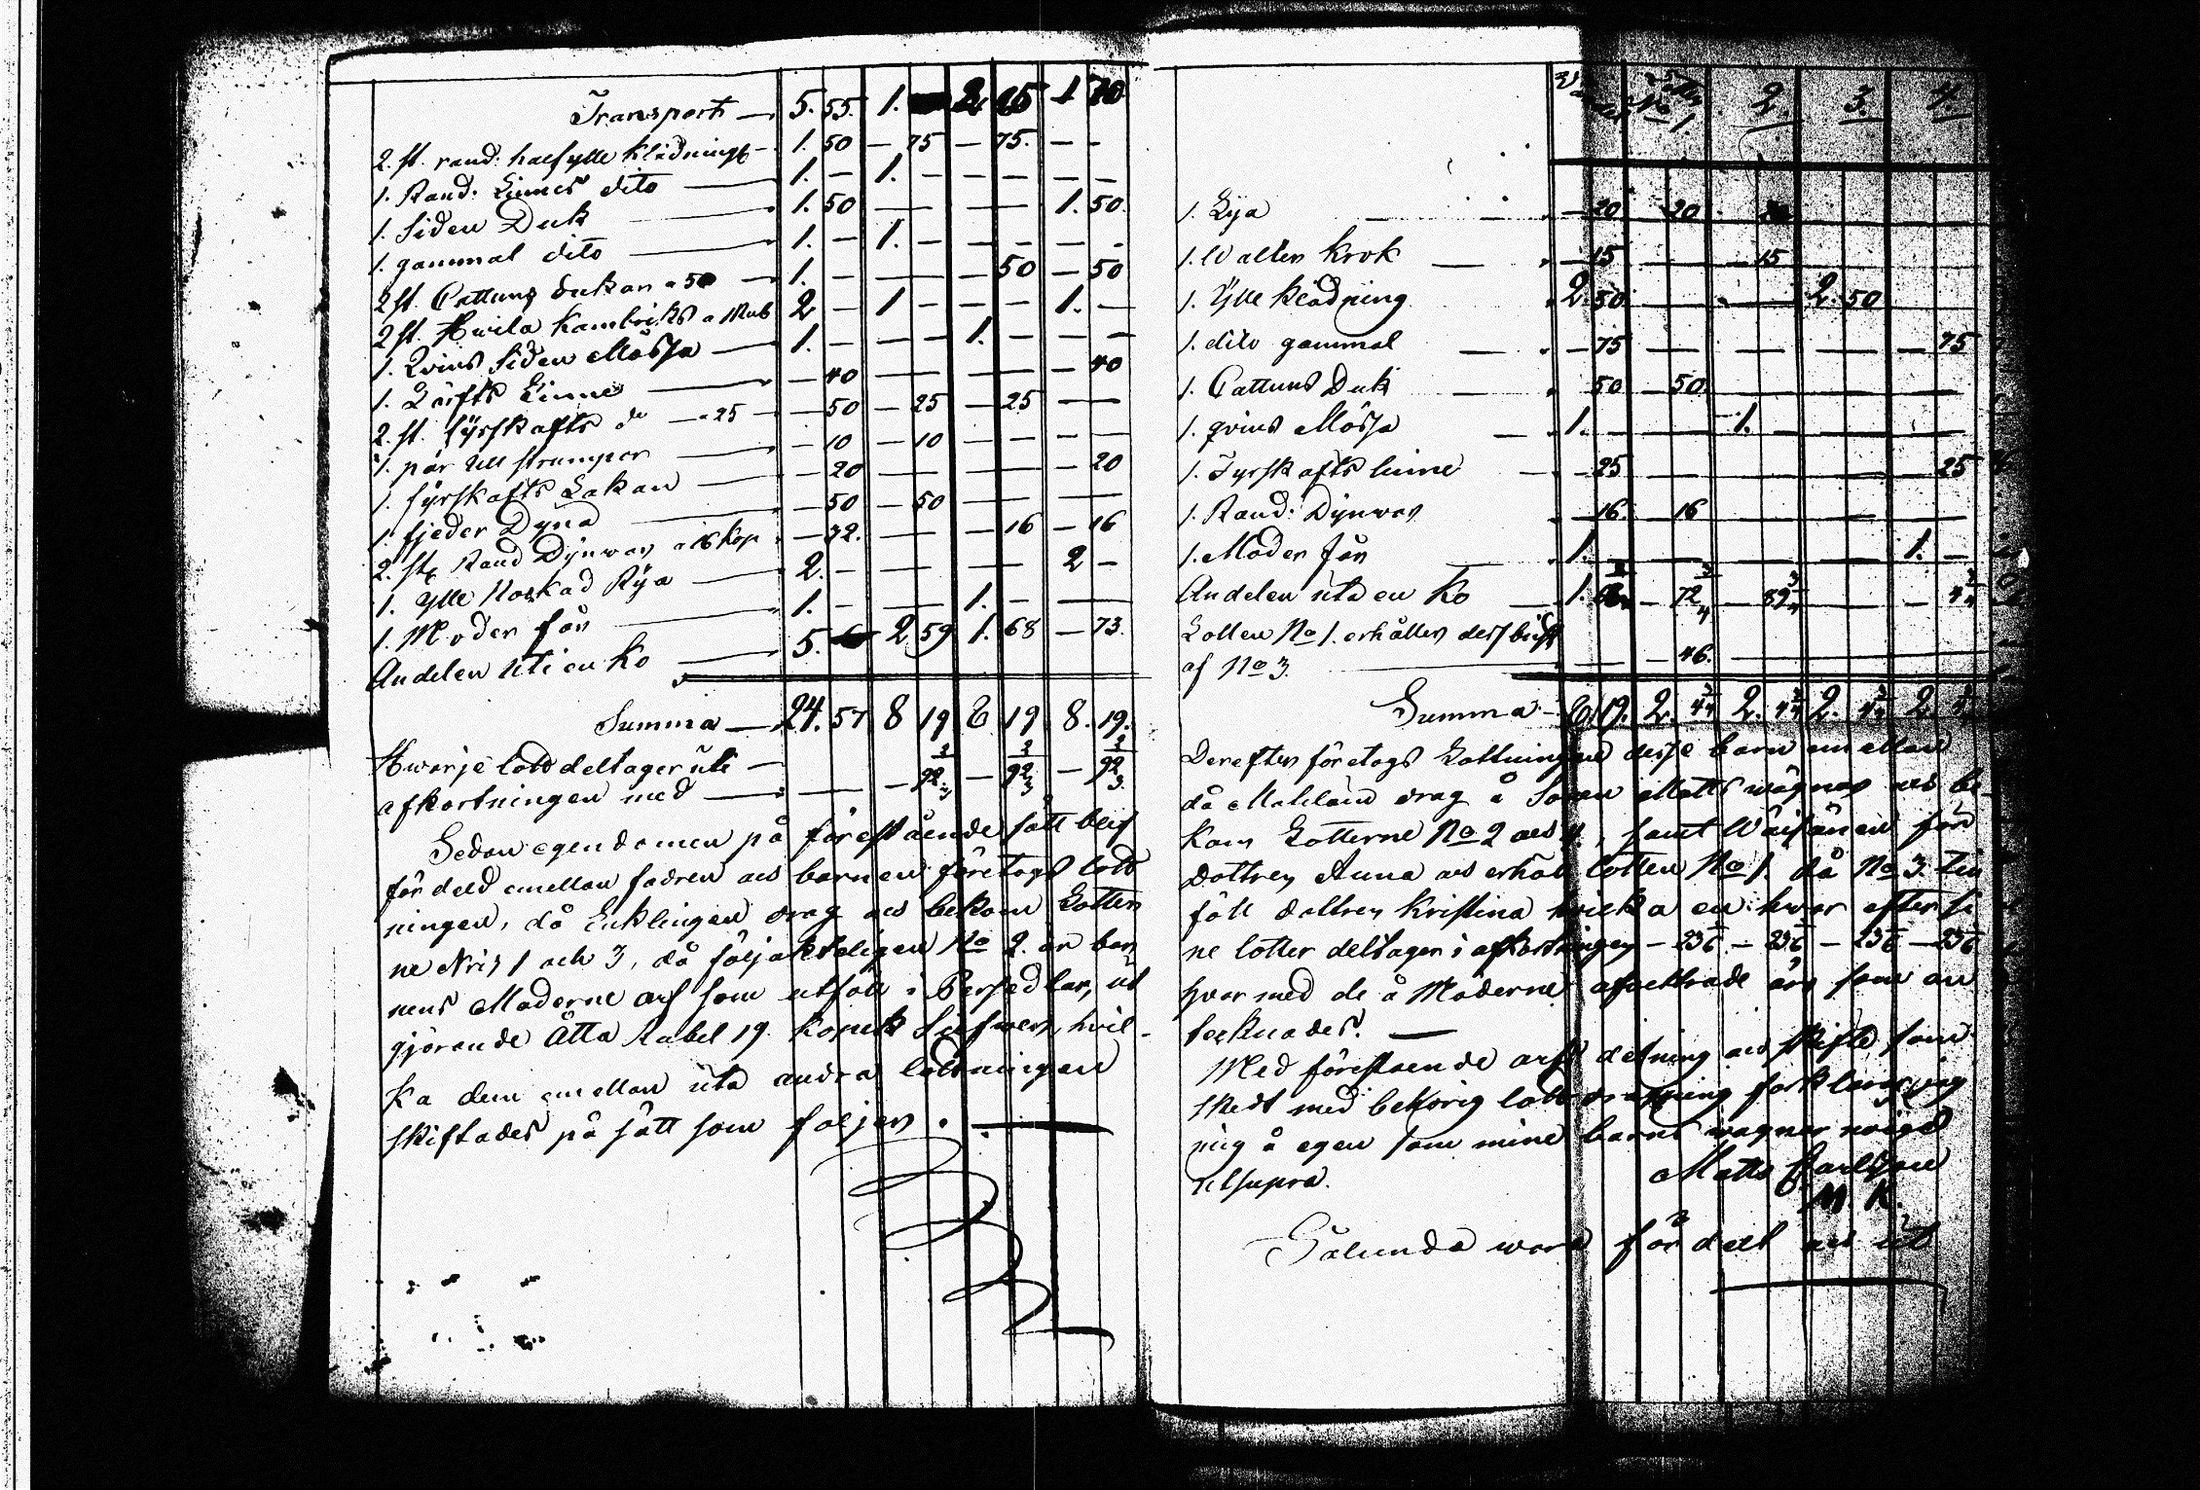 Transport — 5. 55. 1. 2. 25 1 70
2. st. rand: halfylle Klädningt — 1. 50 — 75 — 75. — -
1. Rand: Linnes dito — 1. — 1. — — — — —
1. Siden Duk — 1. 50 — — — — 1. 50.
1. gammal dito — 1. — 1. — — — — -
2 st. Cattuns dukar a 50 — 1. — — — — 50 — 50
2 st. Hwila Kambriks a 1 Rub 2 — 1 — — — 1. —
1. Qvins Siden Mössa — 1. — — — 1. — — —
1. Lärfts Linne — — 40 — — — — — 40
2. st. fyrskafts do — a 25 — — 50 — 25 — 25 — —
1. par Ull strumpor — — 10 — 10 — — — —
1. fyrskafts Lakan — — 20 — — — — — 20
1 fjeder Dyna — — 50 — 50 — — — —
2. st. Rand Dynwar a 16 Kop. — 32. — — — 16 — 16
1. Ylle Roskad Rya — 2. — — — — — 2 —
1. Moder får — 1. — — — 1. — — —
Andelen uti en Ko — 5. 2 59 1. 68 — 73.
Summa — 24. 57 8 19 8 19 8. 19.
Hwarje lott deltager uti —
afkortningen med — — — 92 2/3 — 92 2/3 — 92 2/3
Sedan egendomen på förestående sätt blef
fördeld emellan fadren och barnen företogs lott
ningen, då Enklingen drog och bekom Lotter
ne Nris 1 och 3, då följakteligen No 2. är bar
nens Moderne arf som utföll i Persedlar, ut
gjörande Åtta Rubel 19. Kopek Silfwer, hvil-
ka dem emellan uta andra lottningen
skiftades på sätt som följer.
No 1. 2. 3. 4.
1. Lya — — 20 — 20
1. Watten Krok — — 15 — — — 15
1. Ylle Klädning 2. 50 — — — — 2. 50
1. dito gammal — — 75 — — — — — — — 75
1. Cattuns Duk — 50 — 50 — — — — — —
1. qvins Mössa — 1. — — — 1. — — — — —
1. Fyrskafts linne — — 25 — — — — — — — 25
1. Rand: Dynwar — 16. — 16 — — — — — —
1. Moder får — 1. — — — — — — — 1. —
Andelen uta en Ko — 1. — 72 3/4 — 89 3/4 — — — 4 3/4
Lotten No 1. erhåller dess brist
af No 3. — — — 46. — — — — — —
Summa — 8. 19. 2. 4 3/4 2. 4 3/4 2. 4 3/4 2. 4 3/4
Derefter företogs Lottningen desse barn emellan
då drog å Sonen Matts wägnar och be-
kom Lotterne No 2 och 4., samt för
Dottren Anna och erhöll lotten No 1. då No 3. till
föll dottren Kristina hvilka en hwar efter si
ne lotter deltager i afkortningen — 23 1/6 — 23 1/6 — 23 1/6 — 23 1/6
hvar med de å Moderne afvittrade äro som an
tecknades. —
Med förestående arfs delning och skifte som
skedt med behörig lottdragning förklarar jag
mig å egen som mine barns wägnar nöjgd
Utsupra.
Matts Carlsson
M. K.
Sålunda ware fördelt och ut